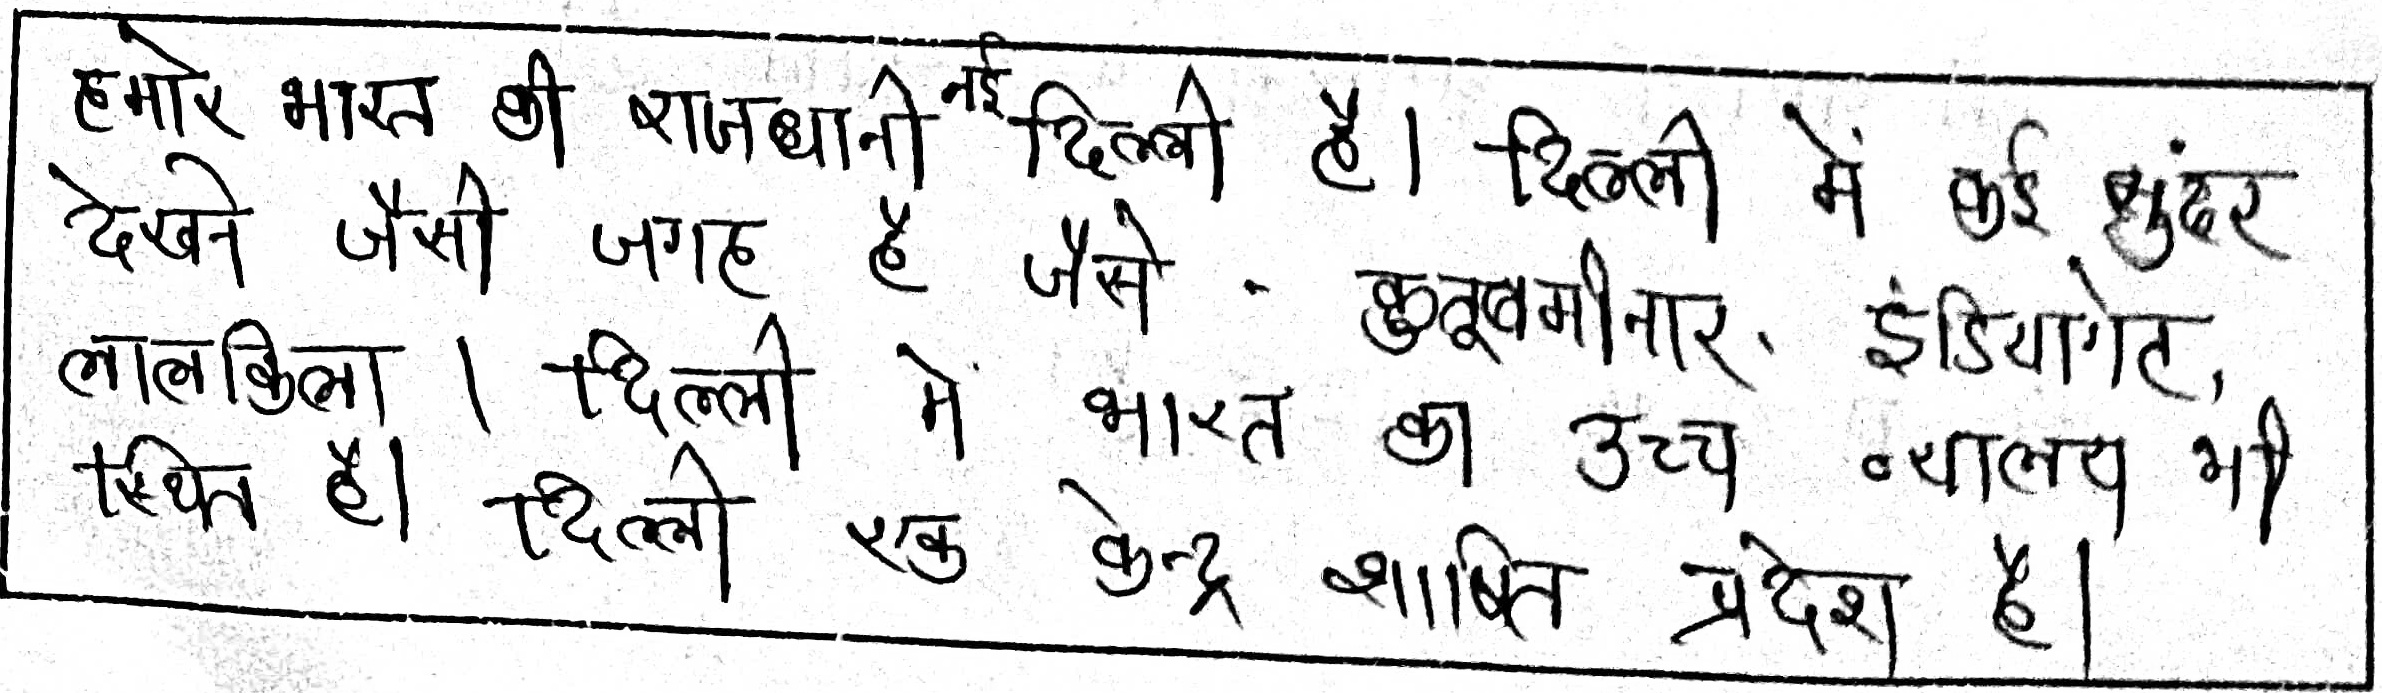 हमारे भारत की राजधानी नई दिल्ली है। दिल्ली में कई सुंदर
देखने जैसी जगह है जैसे - कुतूबमीनार, इंडियागेट,
लालकिला । दिल्ली में भारत का उच्च न्यालय भी
स्थित है। दिल्ली एक केन्द्र शाषित प्रदेश है।